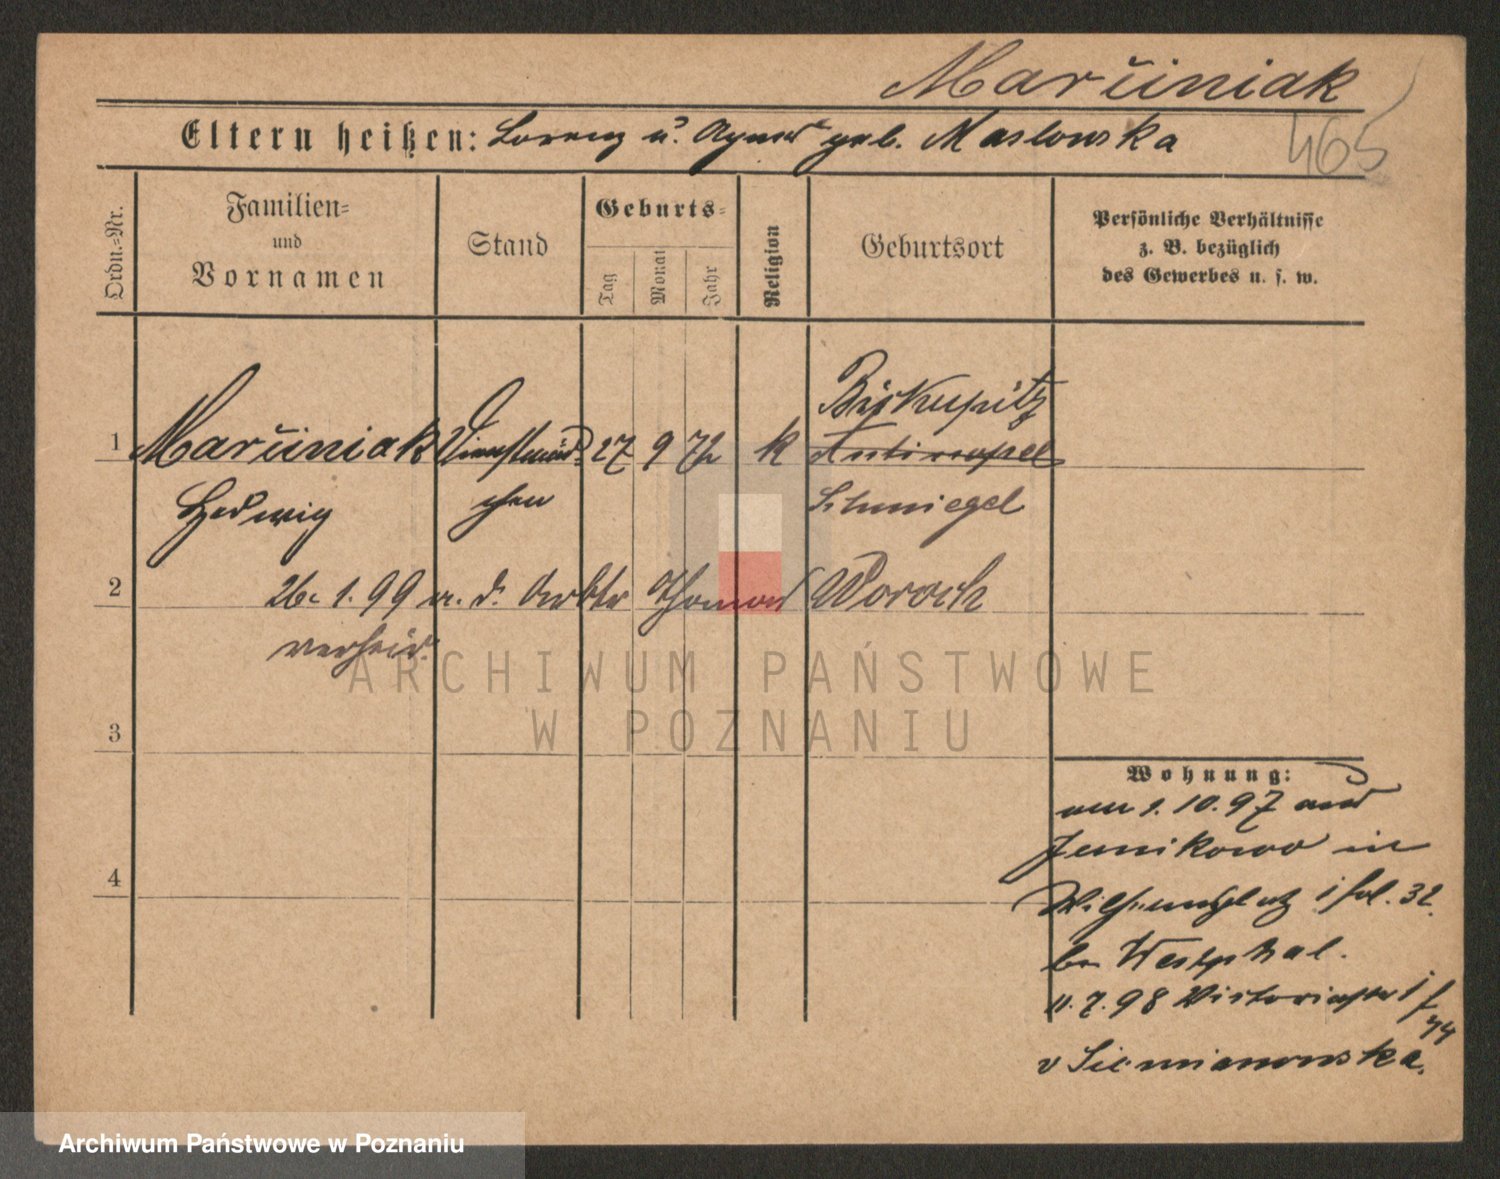 Marciniak
465
Eltern heißen: Lorenz u. Agnes geb. Maslowska
Ordn.=Nr.
Familien= und Vornamen
Stand
Geburts=
Tag
Monat
Jahr
Religion
Geburtsort
Persönliche Verhältnisse
z. B. bezüglich
des Gewerbes u. s. w.
Biskupitz
1 Marciniak Dienstmäd= 27 9 72 k
Hedwig chen Schmiegel
2 26. 1. 99 m. d. Arbtr Thomas Worach
verheir.
ARCHIWUM PAŃSTWOWE
W POZNANIU
3
Wohnung:
1. 10. 97 aus
in
4
Wilhelmsplatz 32.
bei Westphal.
11. 7. 98 Victoriastr
v Siemianowska.
Archiwum Państwowe w Poznaniu